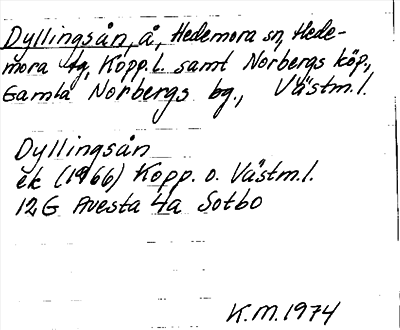 Dyllingsån, å, Hedemora sn, Hede-
mora tg, Kopp.l. samt Norbergs köp.,
Gamla Norbergs bg., Västm.l.
Dyllingsån
ek (1966) Kopp. o. Västm.l.
12G Avesta 4a Sotbo
K.M.1974